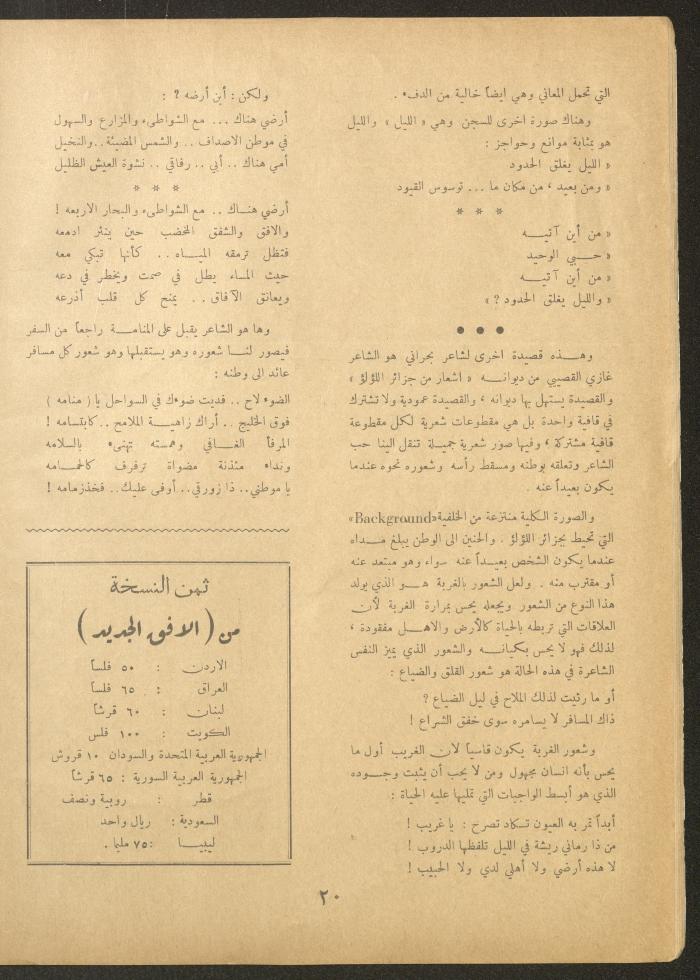 التي تحمل المعاني وهي ايضاً خالية من الدفء .
وهناك صورة اخرى للسجن وهي « الليل » والليل
هو بمثابة موانع وحواجز :
« الليل يغلق الحدود
« ومن بعيد ، من مكان ما ... توسوس القيود
* * *
« من أين آتيـــه
« حـــبي الوحيد
« من أين آتيـــه
« والليل يغلق الحدود ? »
● ● ●
وهـــذه قصيدة اخرى لشاعر بحراني هو الشاعر
غازي القصيبي من ديوانـــه « اشعار من جزائر اللؤلؤ »
والقصيدة يستهل بها ديوانه ، والقصيدة عمودية ولا تشترك
في قافية واحدة بل هي مقطوعات شعرية لكل مقطوعة
قافية مشتركة ، وفيها صور شعرية جميـلة تنقل الينا حب
الشاعر وتعلقه بوطنه ومسقط رأسه وشعوره نحوه عندما
يكون بعيداً عنه .
والصورة الكلية منتزعة من الخلفية «Background»
التي تحيط بجزائر اللؤلؤ . والحنين الى الوطن يبلغ مـــداه
عندما يكون الشخص بعيـــداً عنه سواء وهو مبتعد عنه
أو مقترب منه . ولعل الشعور بالغربة هـــو الذي يولد
هذا النوع من الشعور ويجعله يحس بمرارة الغربة لأن
العلاقات التي تربطه بالحياة كالأرض والاهـــل مفقودة ،
لذلك فهو لا يحس بكيانـــه والشعور الذي يميز النفس
الشاعرة في هذه الحالة هو شعور القلق والضياع :
أو ما رثيت لذلك الملاح في ليل الضياع ?
ذاك المسافر لا يسامره سوى خفق الشراع !
وشعور الغربة يكون قاسياً لأن الغريب أول ما
يحس بأنه انسان مجهول ومن لا يحب أن يثبت وجـــوده
الذي هو أبسط الواجبات التي تمليها عليه الحياة :
أبداً تمر به العيون تسكاد تصرخ : يا غريب !
من ذا رماني ريشة في الليل تلفظها الدروب !
لا هذه أرضي ولا أهلي لدي ولا الحبيب !
ولكن : أين أرضه ? :
أرضي هناك ... مع الشواطىء والمزارع والسهول
في موطن الاصداف .. والشمس المضيئة .. والنخيل
أمي هناك .. أبي .. رفاقي .. نشوة العيش الظليل
* * *
أرضي هنـــاك .. مع الشواطىء والبحار الاربعه !
والافق والشفق المخضب حين ينثر ادمعه
فتظل ترمقه الميـــاه .. كأنها تبكي معه
حيث المساء يطل في صمت ويخطر في دعه
ويعانق الآفاق .. يمنح كل قلب أذرعه
وها هو الشاعر يقبل على المنامـــة راجعاً من السفر
فيصور لنـــا شعوره وهو يستقبلها وهو شعور كل مسافر
عائد الى وطنه :
الضوء لاح .. فديت ضوءك في السواحل يا ( منامه )
فوق الخليج .. أراك زاهيـــة الملامح .. كابتسامه !
المرفأ الغـــافي وهمسته تهنىء بالسلامه
ونداء مئذنة مضواة ترفرف كالحمـــامه
يا موطني.. ذا زورقي.. أوفى عليك.. فخذ زمامه !
ثمن النسخة
من ( الافق الجديد )
الاردن : ٥٠ فلساً
العراق : ٦٥ فلساً
لبنان : ٦٠ قرشاً
الكويت : ١٠٠ فلس
الجمهورية العربية المتحدة والسودان ١٠ قروش
الجمهورية العربية السورية : ٦٥ قرشاً
قطر : روبية ونصف
السعودية : ريال واحد
ليبيـــا : ٧٥ مليما .
٢٠